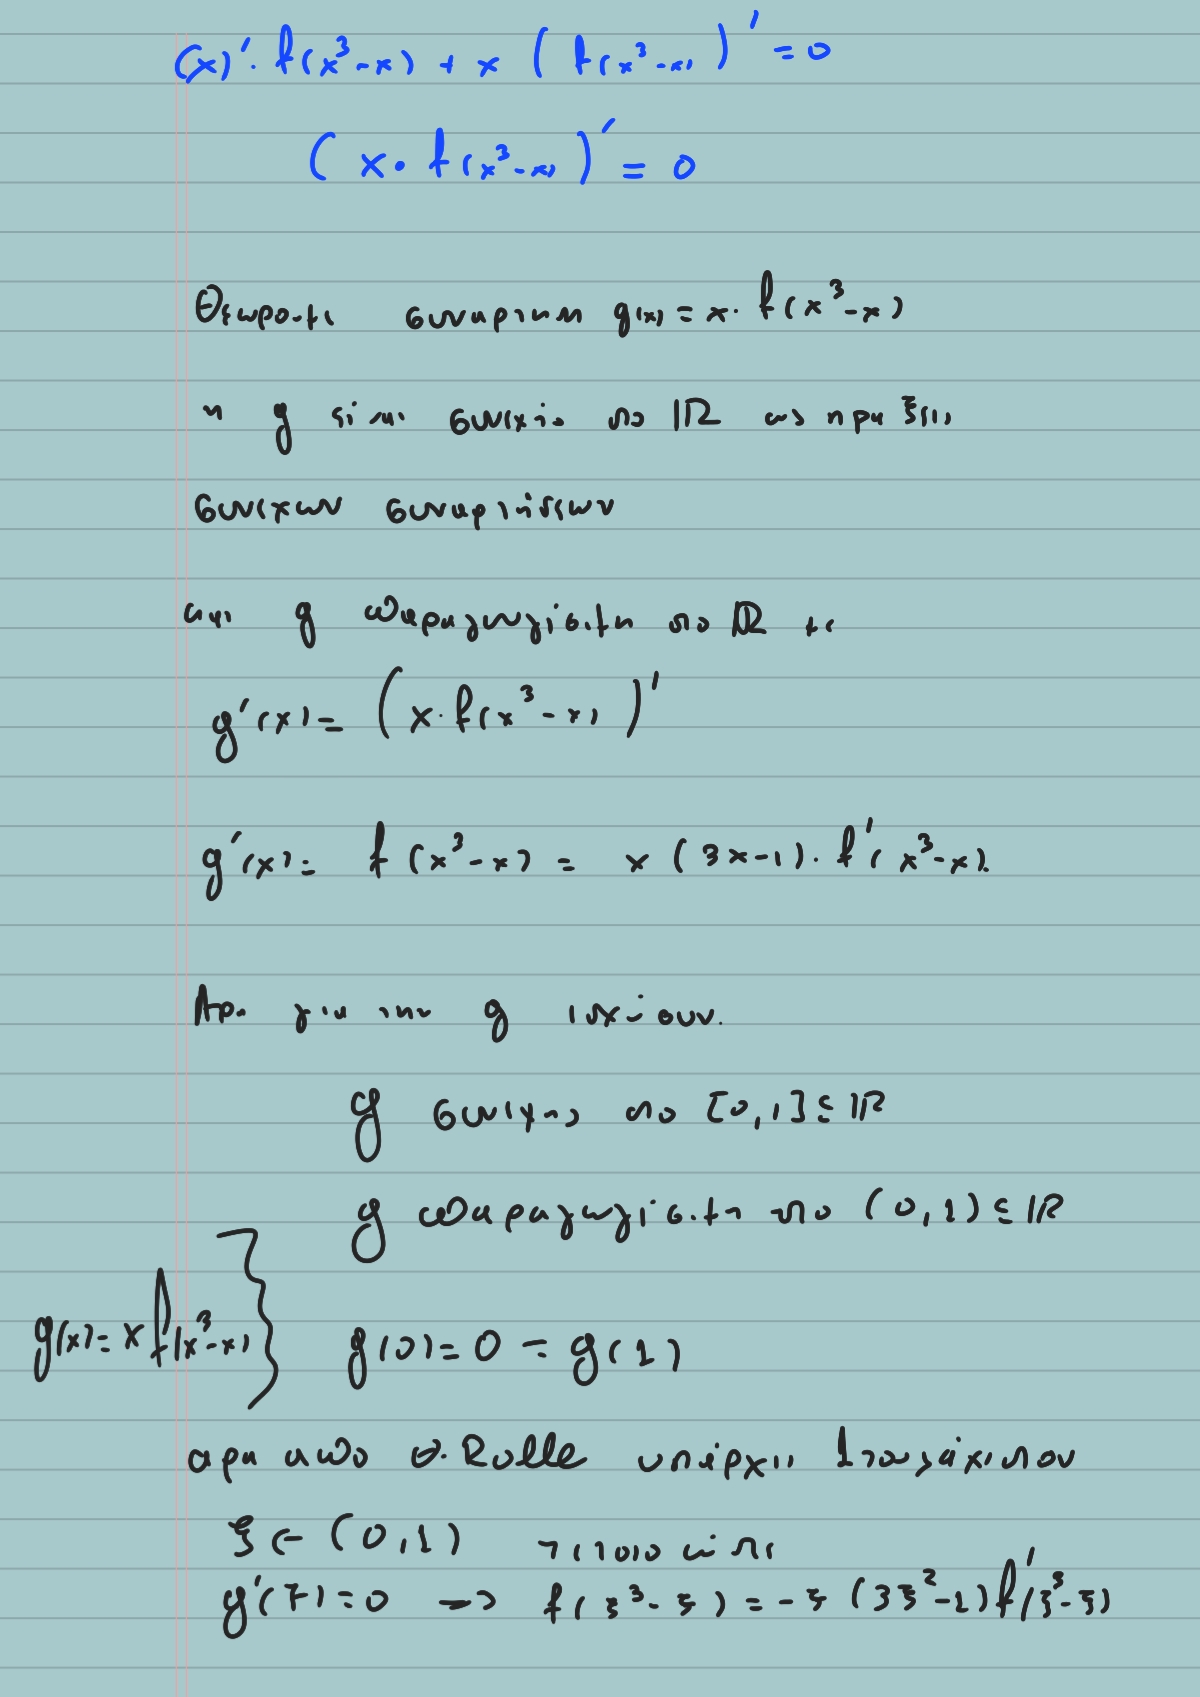 (x)'· f(x³-x) + x (f(x³-x))' = 0
(x· f(x³-x))' = 0
Θεωρουμε συναρτηση g(x) = x· f(x³-x)
η g είναι συνεχής στο ℝ ως πράξεις
συνεχων συναρτήσεων
και g παραγωγίσιμη στο ℝ με
g'(x) = (x· f(x³-x))'
g'(x) = f(x³-x) = x(3x-1)· f'(x³-x).
Αρα για την g ισχύουν.
g συνεχης στο [0,1] ⊆ ℝ
g παραγωγίσιμη στο (0,1) ⊆ ℝ
g(x) = x f(x³-x) } g(0) = 0 = g(1)
αρα απο Θ. Rolle υπάρχει 1 τουλάχιστον
ξ ∈ (0,1) τετοιο ώστε
g'(ξ) = 0 → f(ξ³-ξ) = -ξ(3ξ²-1)f'(ξ³-ξ)